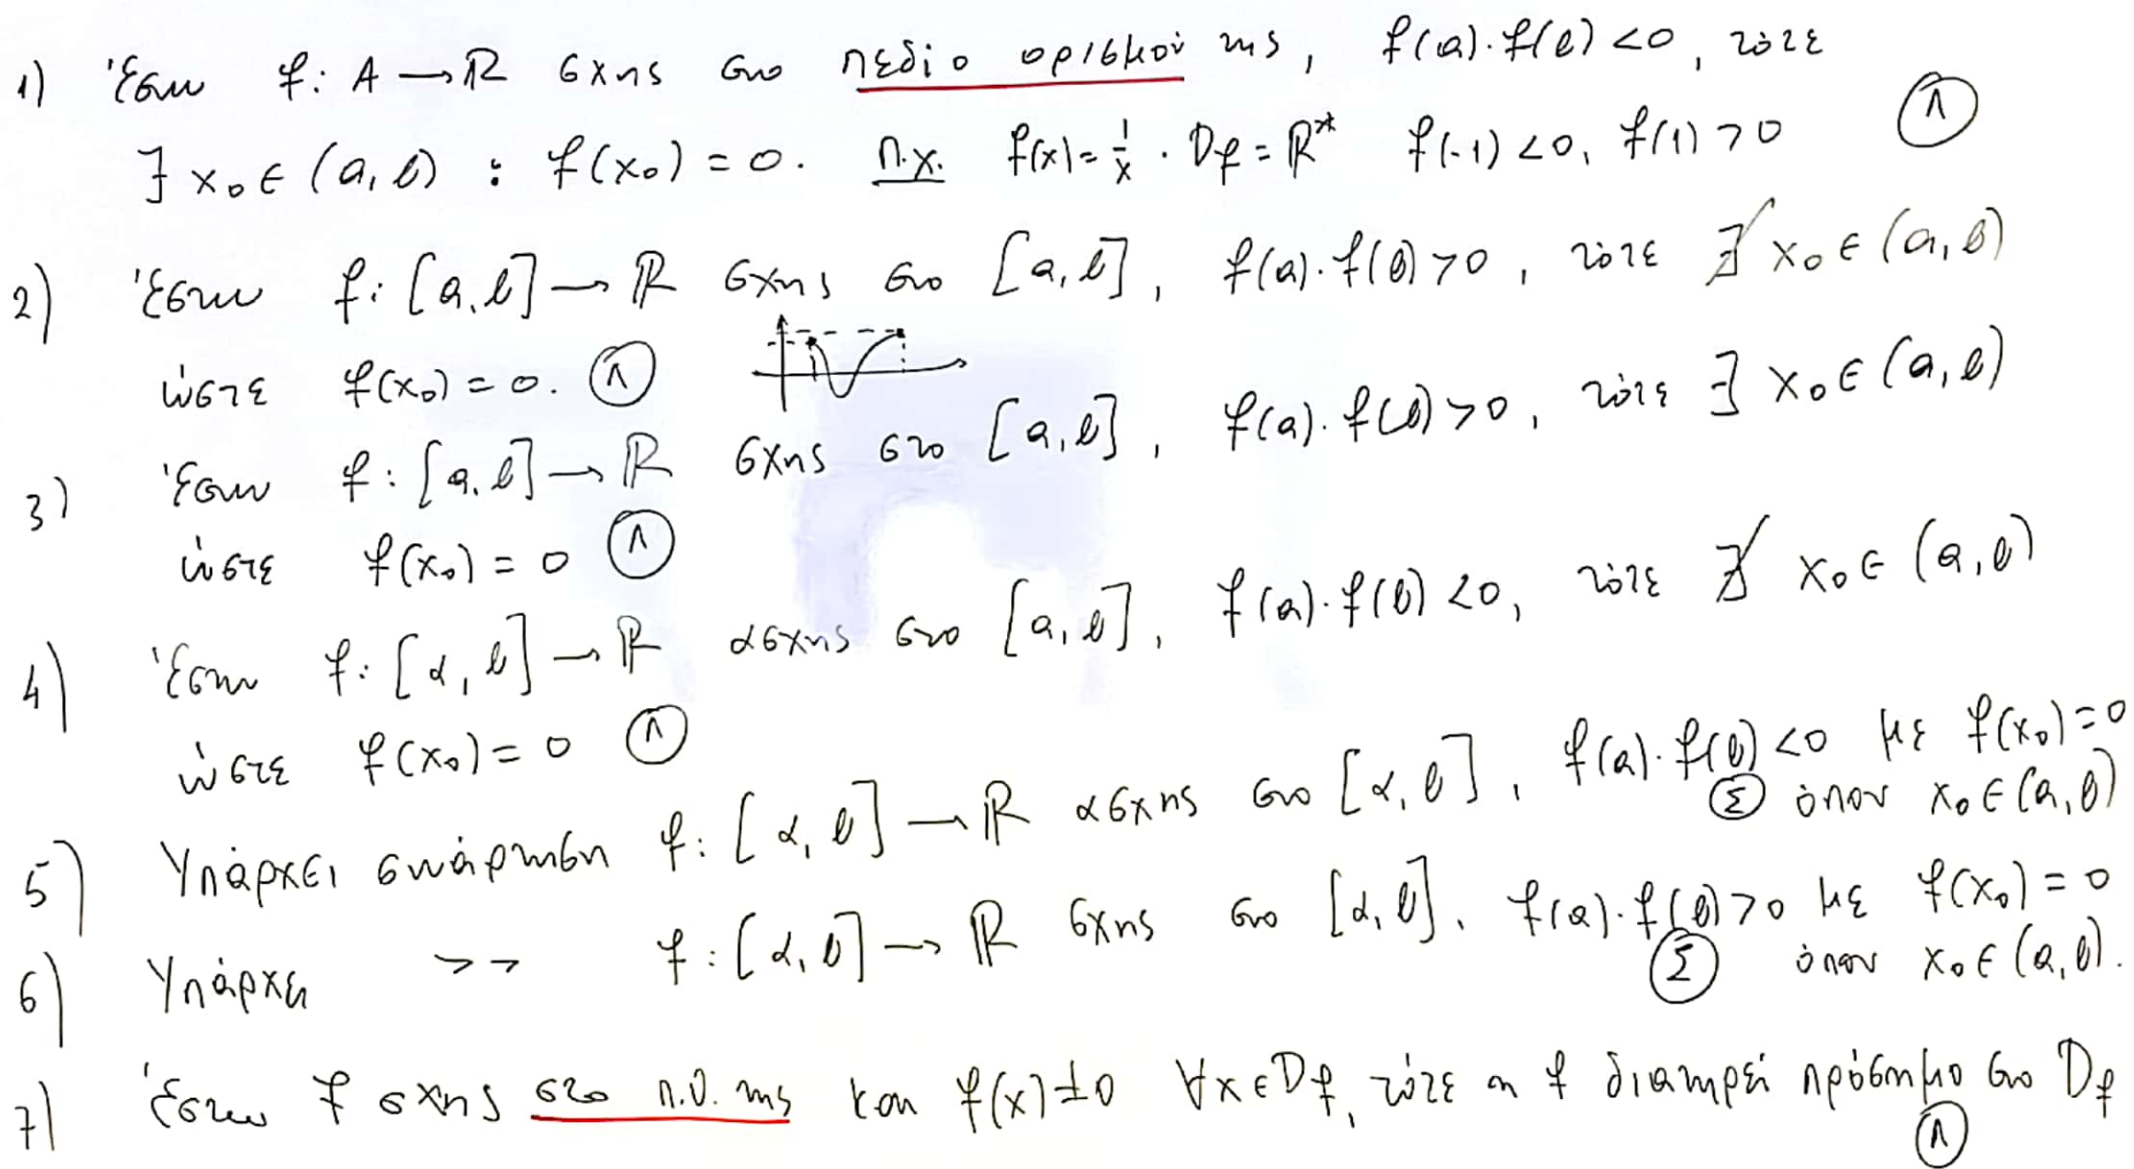 1) Έστω f: A → ℝ σχης στο πεδίο ορισμού της, f(α)·f(β) <0, τότε
∃ x₀ ∈ (α, β) : f(x₀) = 0. π.χ. f(x) = 1/x · D_f = ℝ* f(-1) <0, f(1) >0 (Λ)
2) Έστω f: [α, β] → ℝ σχης στο [α, β], f(α)·f(β) >0, τότε ∄ x₀ ∈ (α, β)
ώστε f(x₀) = 0. (Λ)
3) Έστω f: [α, β] → ℝ σχης στο [α, β], f(α)·f(β) >0, τότε ∃ x₀ ∈ (α, β)
ώστε f(x₀) = 0 (Λ)
4) Έστω f: [α, β] → ℝ ασχης στο [α, β], f(α)·f(β) <0, τότε ∄ x₀ ∈ (α, β)
ώστε f(x₀) = 0 (Λ)
5) Υπάρχει συνάρτηση f: [α, β] → ℝ ασχης στο [α, β], f(α)·f(β) <0 με f(x₀) = 0
(Σ) όπου x₀ ∈ (α, β)
6) Υπάρχει >> f: [α, β] → ℝ σχης στο [α, β]. f(α)·f(β) >0 με f(x₀) = 0
(Σ) όπου x₀ ∈ (α, β).
7) Έστω f σχης στο π.ο. της και f(x) ≠ 0 ∀x ∈ D_f, τότε η f διατηρεί πρόσημο στο D_f
(Λ)